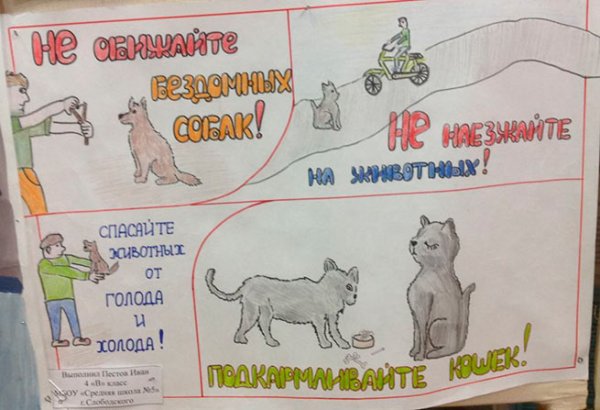 НЕ ОБИЖАЙТЕ
БЕЗДОМНЫХ
СОБАК!
НЕ НАЕЗЖАЙТЕ
НА ЖИВОТНЫХ!
СПАСАЙТЕ
ЖИВОТНЫХ
ОТ
ГОЛОДА
И
ХОЛОДА!
ПОДКАРМЛИВАЙТЕ КОШЕК!
Выполнил Пестов Иван
4 «В» класс
МБОУ «Средняя школа №5»
г.Слободского